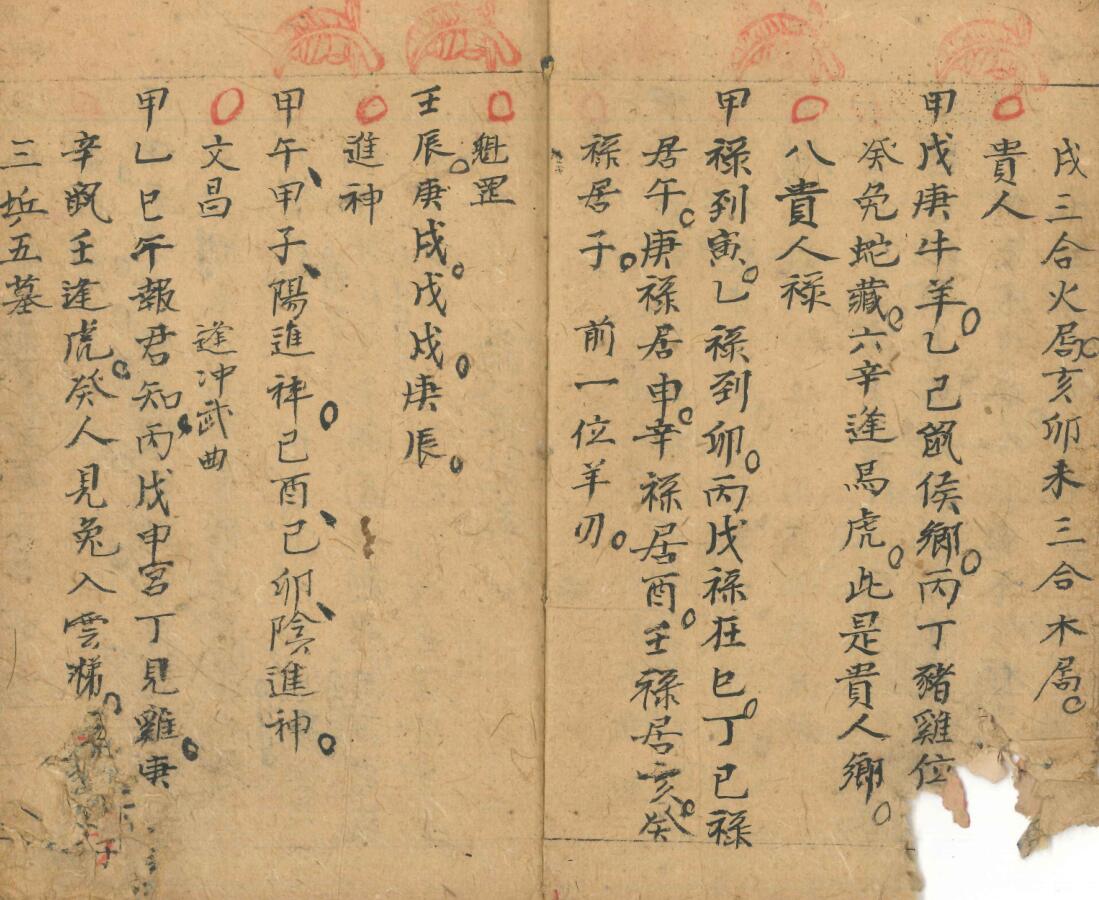 戌三合火局亥卯未三合木局
貴人
甲戊庚牛羊乙己鼠侯鄉丙丁豬雞位
癸兔蛇藏六辛逢馬虎此是貴人鄉
八貴人祿
甲祿到寅乙祿到卯丙戊祿在巳丁己祿
居午庚祿居申辛祿居酉壬祿居亥癸
祿居子 前一位羊刃
魁罡
壬辰庚戌戊戌庚辰
進神
甲午甲子陽進神己酉己卯陰進神
文昌 逢冲武曲
甲乙巳午報君知丙戊申宮丁見雞庚
辛鼠壬逢虎癸人見兔入雲梯
三坵五墓